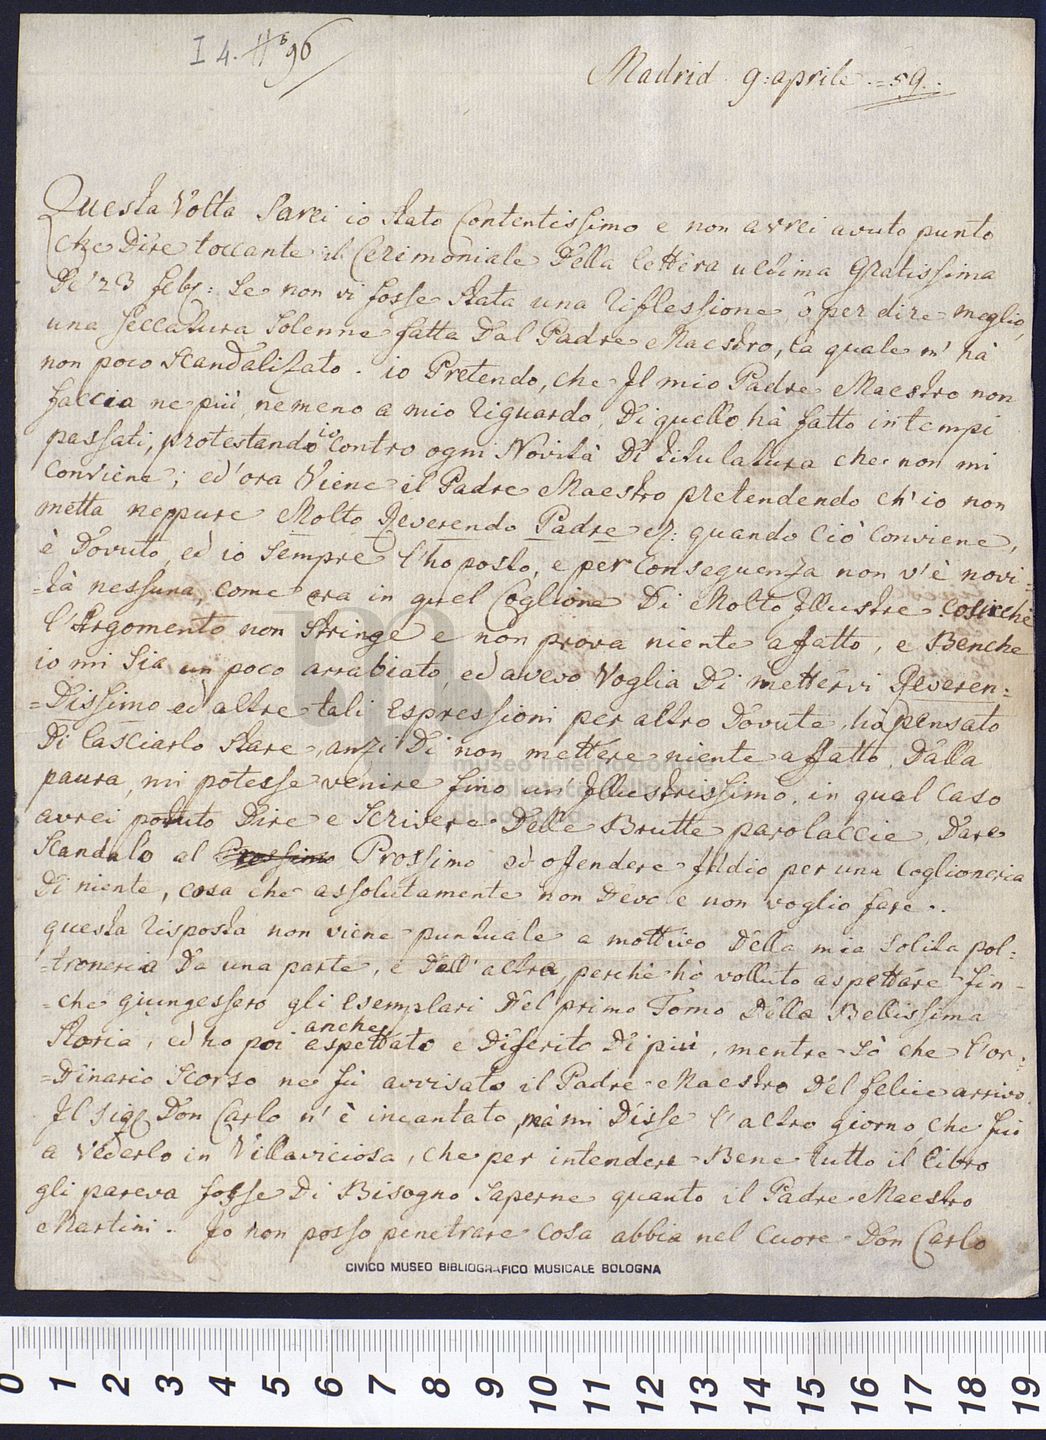 I 4. H.^s 96
Madrid 9: aprile = 59.
Questa Volta Sarei io stato Contentissimo e non avrei avuto punto
che Dire toccante il Cerimoniale Della lettera ultima gratissima
De' 23 feb: Se non vi fosse stata una riflessione, ò per dire meglio,
una seccatura Solenne fatta Dal Padre Maestro, la quale m' hà
non poco scandalizato. io Pretendo, che Il mio Padre Maestro non
faccia ne più, ne meno a mio riguardo, Di quello hà fatto in tempi
passati, protestando io Contro ogni Novità Di titulatura che non mi
Conviene; ed' ora Viene il Padre Maestro pretendendo ch' io non
metta neppure Molto Reverendo Padre quando Ciò Conviene,
è Dovuto, ed io Sempre l'ho posto, e per Conseguenza non v'è novi=
=tà nessuna, come era in quel Coglione Di Molto Illustre Cosicchè
l'Argomento non stringe e non prova niente affatto, e Benche
io mi Sia un poco arrabiato, ed avevo Voglia Di mettervi Reveren=
=Dissimo ed altre tali Espressioni per altro Dovute, hò pensato
Di lasciarlo stare, anzi Di non mettere niente affatto, Dalla
paura, mi potesse venire fino un' Illustrissimo, in qual Caso
avrei potuto Dire e Scrivere Delle Brutte parolaccie, Dare
Scandalo al Prossimo Prossimo ed ofendere Iddio per una Coglioneria
Di niente, cosa che assolutamente non Devo e non voglio fare..
questa risposta non viene puntuale a mottivo Della mia Solita pol=
=troneria Da una parte, e Dall' altra, perchè hò volluto aspettare fin=
=che giungessero gli Esemplari Del primo Tomo Della Bellissima
Storia, ed ho poi anche aspettato e Diferito Di più, mentre Sò che l'or=
=Dinario Scorso ne fù avvisato il Padre Maestro Del felice arrivo.
Il Sig.^r Don Carlo n' è incantato, mà mi Disse l' altro giorno, che fui
a Vederlo in Villaviciosa, che per intendere Bene tutto il libro
gli pareva fosse Di Bisogno Saperne quanto il Padre Maestro
Martini. Io non posso penetrare Cosa abbia nel Cuore Don Carlo
museo internazionale
e biblioteca della musica
di bologna
CIVICO MUSEO BIBLIOGRAFICO MUSICALE BOLOGNA
0 1 2 3 4 5 6 7 8 9 10 11 12 13 14 15 16 17 18 19